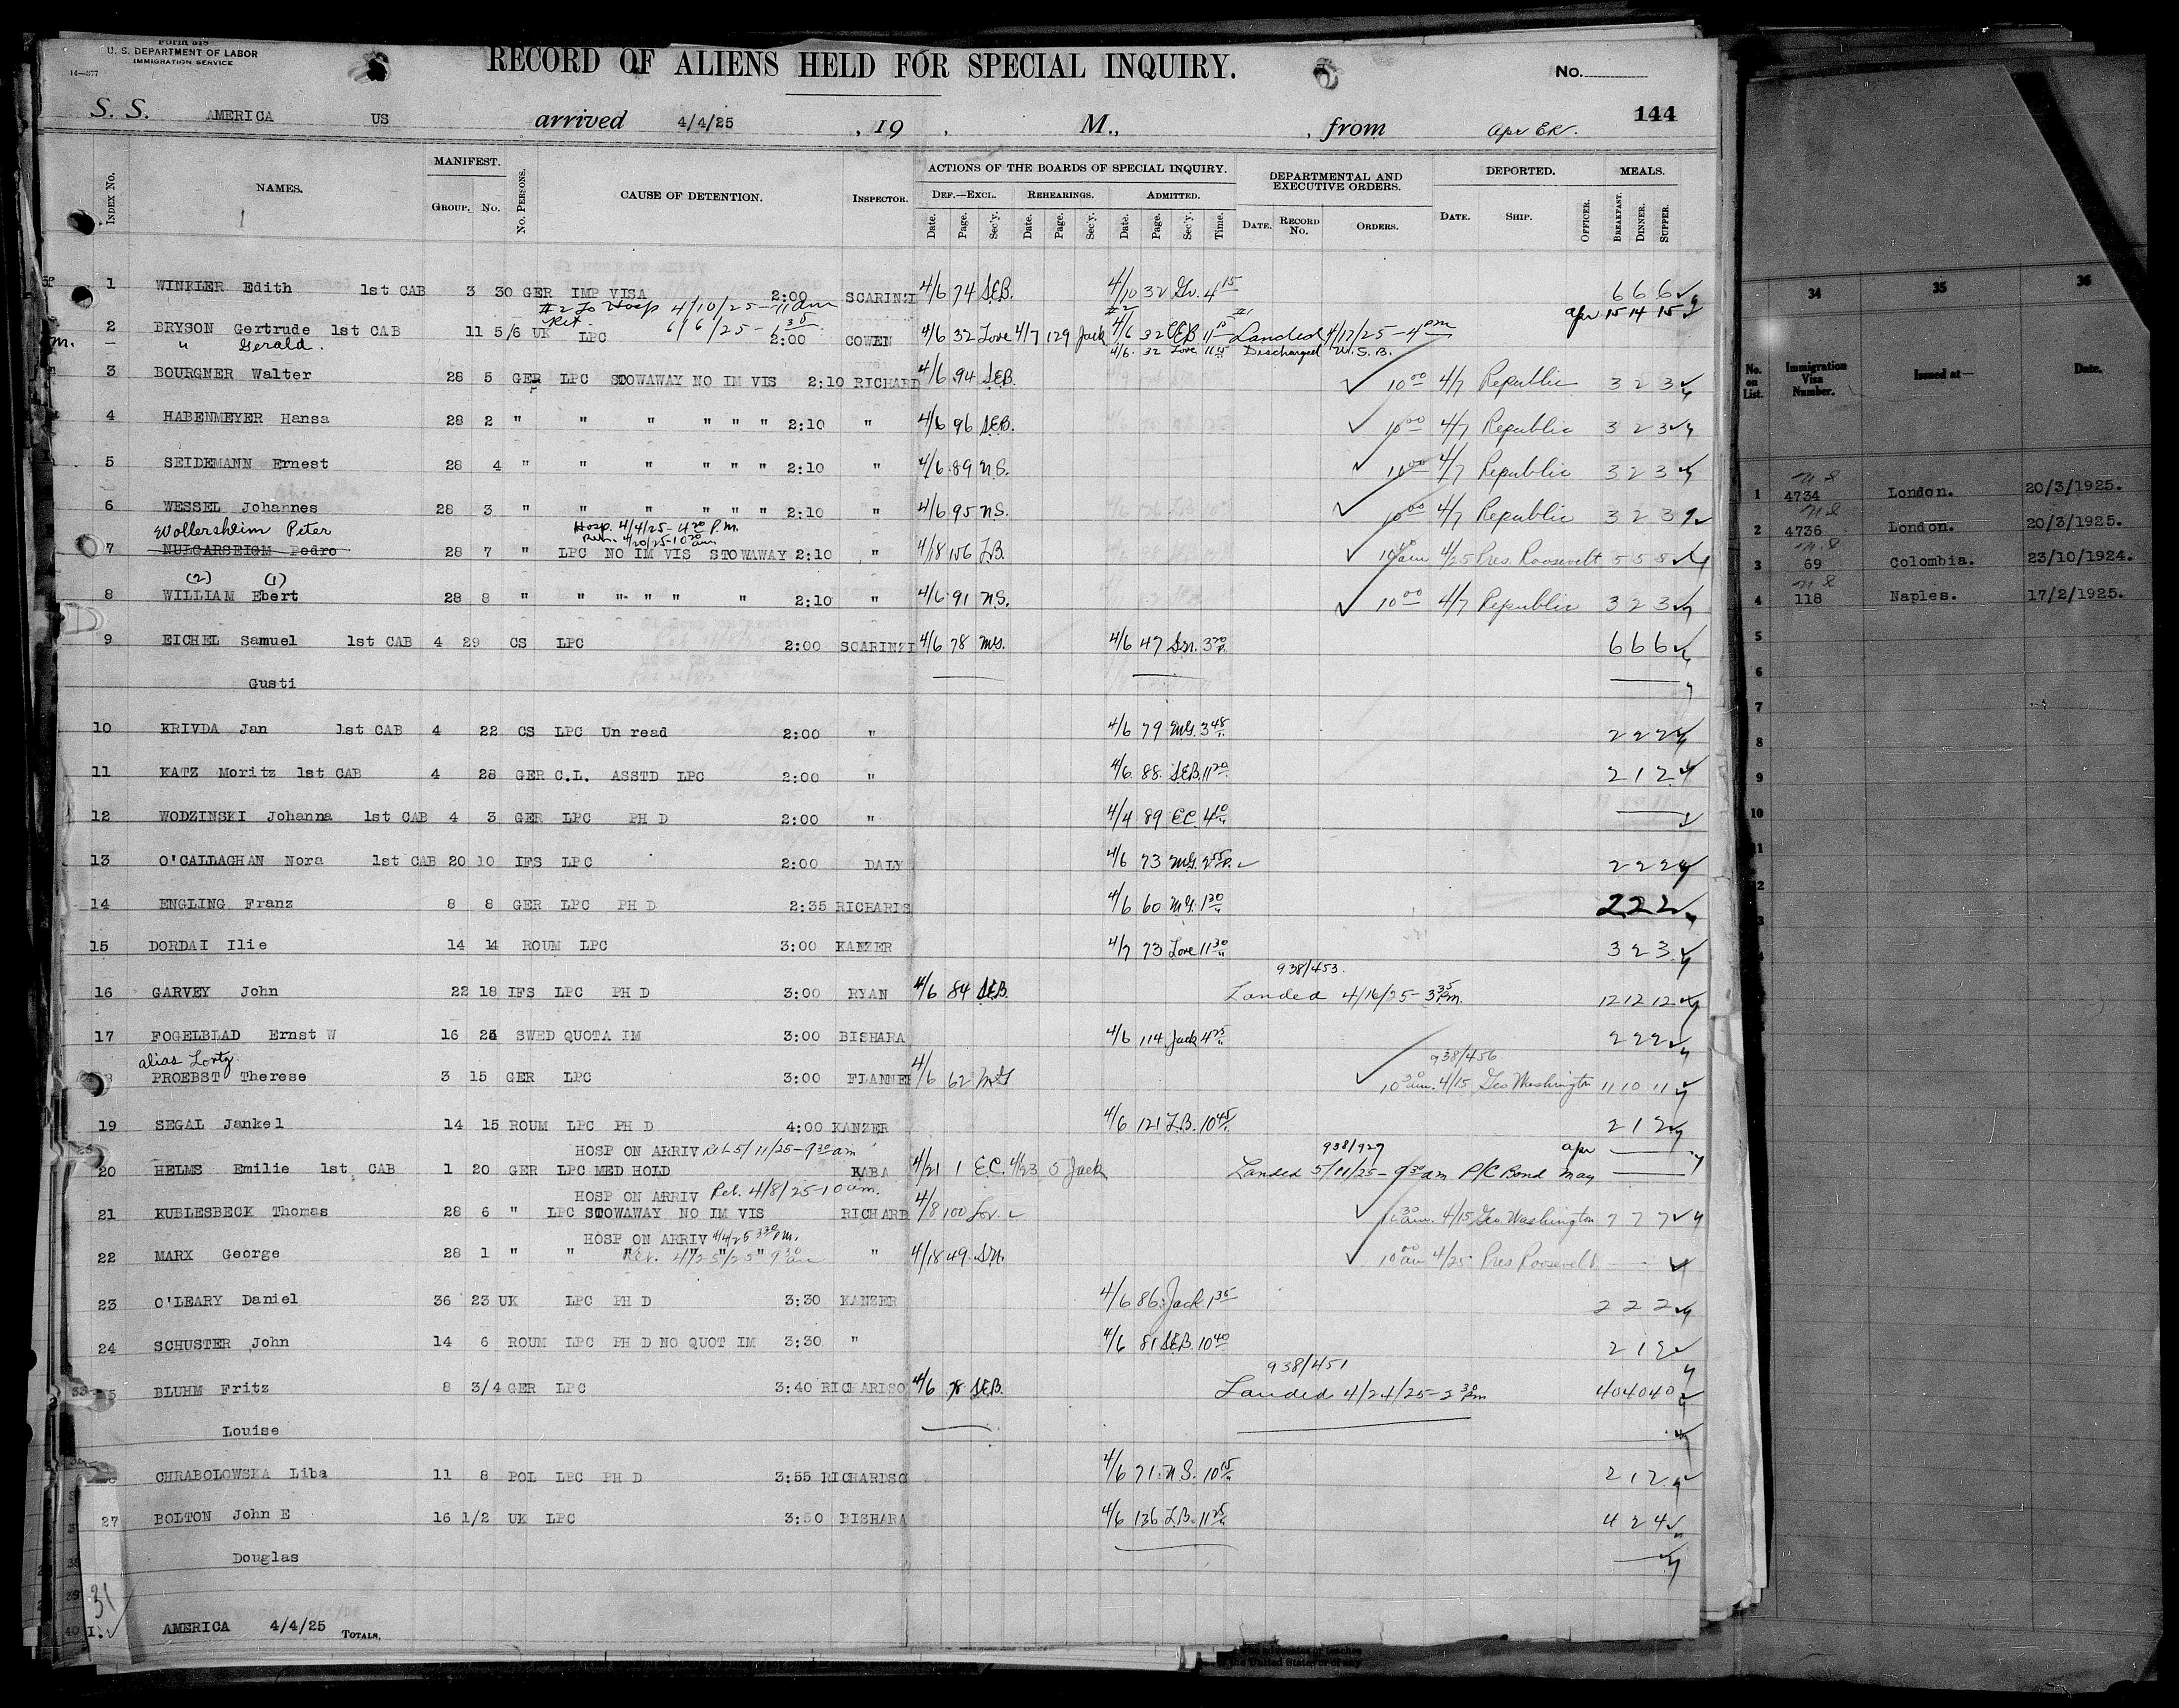 Form 518
U. S. DEPARTMENT OF LABOR
IMMIGRATION SERVICE
14—377
RECORD OF ALIENS HELD FOR SPECIAL INQUIRY.
No.
144
S. S. AMERICA US arrived 4/4/25 , 19 , M., , from
INDEX No. NAMES. MANIFEST. GROUP. No. No. PERSONS. CAUSE OF DETENTION. INSPECTOR. ACTIONS OF THE BOARDS OF SPECIAL INQUIRY. DEF.—EXCL. Date. Page. Sec'y. REHEARINGS. Date. Page. Sec'y. ADMITTED. Date. Page. Sec'y. Time. DEPARTMENTAL AND EXECUTIVE ORDERS. DATE. RECORD No. ORDERS. DEPORTED. DATE. SHIP. OFFICER. MEALS. BREAKFAST. DINNER. SUPPER.
1 WINKLER Edith 1st CAB 3 30 GER IMP VISA 2:00 SCARINZI 4/6 74 S.E.B. 4/10 32 Gr. 4 15 6 6 6
#2 To Hosp 4/10/25 - 11 am
Ret 6/6/25 - 6 30
2 BRYSON Gertrude 1st CAB 11 5/6 UK LPC 2:00 COWEN 4/6 32 Love 4/7 129 Jack 4/6 32 Landed 4/17/25 - 4 pm Apr 15 14 15
" Gerald. 4/6 32 Love Discharged W.S.B.
3 BOURGNER Walter 28 5 GER LPC STOWAWAY NO IM VIS 2:10 RICHARD 4/6 94 S.E.B. 10 00 4/7 Republic 3 2 3
4 HABENMEYER Hansa 28 2 " " " " " " 2:10 " 4/6 96 S.E.B. 10 00 4/7 Republic 3 2 3
5 SEIDEMANN Ernest 28 4 " " " " " " 2:10 " 4/6 89 N.S. 10 00 4/7 Republic 3 2 3
6 WESSEL Johannes 28 3 " " " " " " 2:10 " 4/6 95 N.S. 10 00 4/7 Republic 3 2 3
Wollersheim Peter Hosp. 4/4/25 - 4 20 P.M.
Ret. 4/20/25 - 10 30 am
7 NULGARSEIGM Pedro 28 7 " LPC NO IM VIS STOWAWAY 2:10 " 4/18 156 L.B. 10 am 4/25 Pres. Roosevelt 5 5 5
(2) (1)
8 WILLIAM Ebert 28 8 " " " " " " 2:10 " 4/6 91 N.S. 10 00 4/7 Republic 3 2 3
9 EICHEL Samuel 1st CAB 4 29 CS LPC 2:00 SCARINZI 4/6 78 M.G. 4/6 47 Sn. 3 20 6 6 6
Gusti
10 KRIVDA Jan 1st CAB 4 22 CS LPC Un read 2:00 " 4/6 79 M.G. 3 48 2 2 2
11 KATZ Moritz 1st CAB 4 28 GER C.L. ASSTD LPC 2:00 " 4/6 88 S.E.B. 11 20 2 1 2
12 WODZINSKI Johanna 1st CAB 4 3 GER LPC PH D 2:00 " 4/4 89 E.C. 4 10
13 O'CALLAGHAN Nora 1st CAB 20 10 IFS LPC 2:00 DALY 4/6 73 M.G. 2 55 2 2 2
14 ENGLING Franz 8 8 GER LPC PH D 2:35 RICHARIS 4/6 60 M.G. 1 30 2 2 2
15 DORDAI Ilie 14 14 ROUM LPC 3:00 KANZER 4/7 73 Love 11 30 3 2 3
938/453
16 GARVEY John 22 18 IFS LPC PH D 3:00 RYAN 4/6 84 S.E.B. Landed 4/16/25 - 3 35 Pm. 12 12 12
17 FOGELBLAD Ernst W 16 25 SWED QUOTA IM 3:00 BISHARA 4/6 114 Jack 4 25 2 2 2
alias Lortz 938/456
18 PROEBST Therese 3 15 GER LPC 3:00 FLANNER 4/6 62 M.G. 10 30 am. 4/15 Geo Washington 11 10 11
19 SEGAL Jankel 14 15 ROUM LPC PH D 4:00 KANZER 4/6 121 L.B. 10 45 2 1 2
HOSP ON ARRIV Ret 5/11/25 - 9 30 am 938/927 Apr
20 HELMS Emilie 1st CAB 1 20 GER LPC MED HOLD KABA 4/21 1 E.C. 4/23 5 Jack Landed 5/11/25 - 9 30 am P/C Bond May
HOSP ON ARRIV Ret. 4/8/25 - 10 am.
21 KUBLESBECK Thomas 28 6 " LPC STOWAWAY NO IM VIS RICHARD 4/8 100 Lov. 10 30 am. 4/15 Geo. Washington 7 7 7
HOSP ON ARRIV 4/4/25 3 30 P.M.
22 MARX George 28 1 " " " " " " Ret. 4/25/25 9 30 am " 4/18 49 S.N. 10 00 am 4/25 Pres Roosevelt
23 O'LEARY Daniel 36 23 UK LPC PH D 3:30 KANZER 4/6 86 Jack 1 35 2 2 2
24 SCHUSTER John 14 6 ROUM LPC PH D NO QUOT IM 3:30 " 4/6 81 S.E.B. 10 40 2 1 2
938/451
25 BLUHM Fritz 8 3/4 GER LPC 3:40 RICHARISO 4/6 78 S.E.B. Landed 4/24/25 - 2 30 Pm 40 40 40
Louise
26 CHRABOLOWSKA Liba 11 8 POL LPC PH D 3:55 RICHARDSO 4/6 71 N.S. 10 15 2 1 2
27 BOLTON John E 16 1/2 UK LPC 3:50 BISHARA 4/6 136 L.B. 11 25 4 2 4
Douglas
31
AMERICA 4/4/25 TOTALS.
34 35 36
No. on List. Immigration Visa Number. Issued at— Date.
1 4734 London. 20/3/1925.
2 4736 London. 20/3/1925.
3 69 Colombia. 23/10/1924.
4 118 Naples. 17/2/1925.
5
6
7
8
9
10